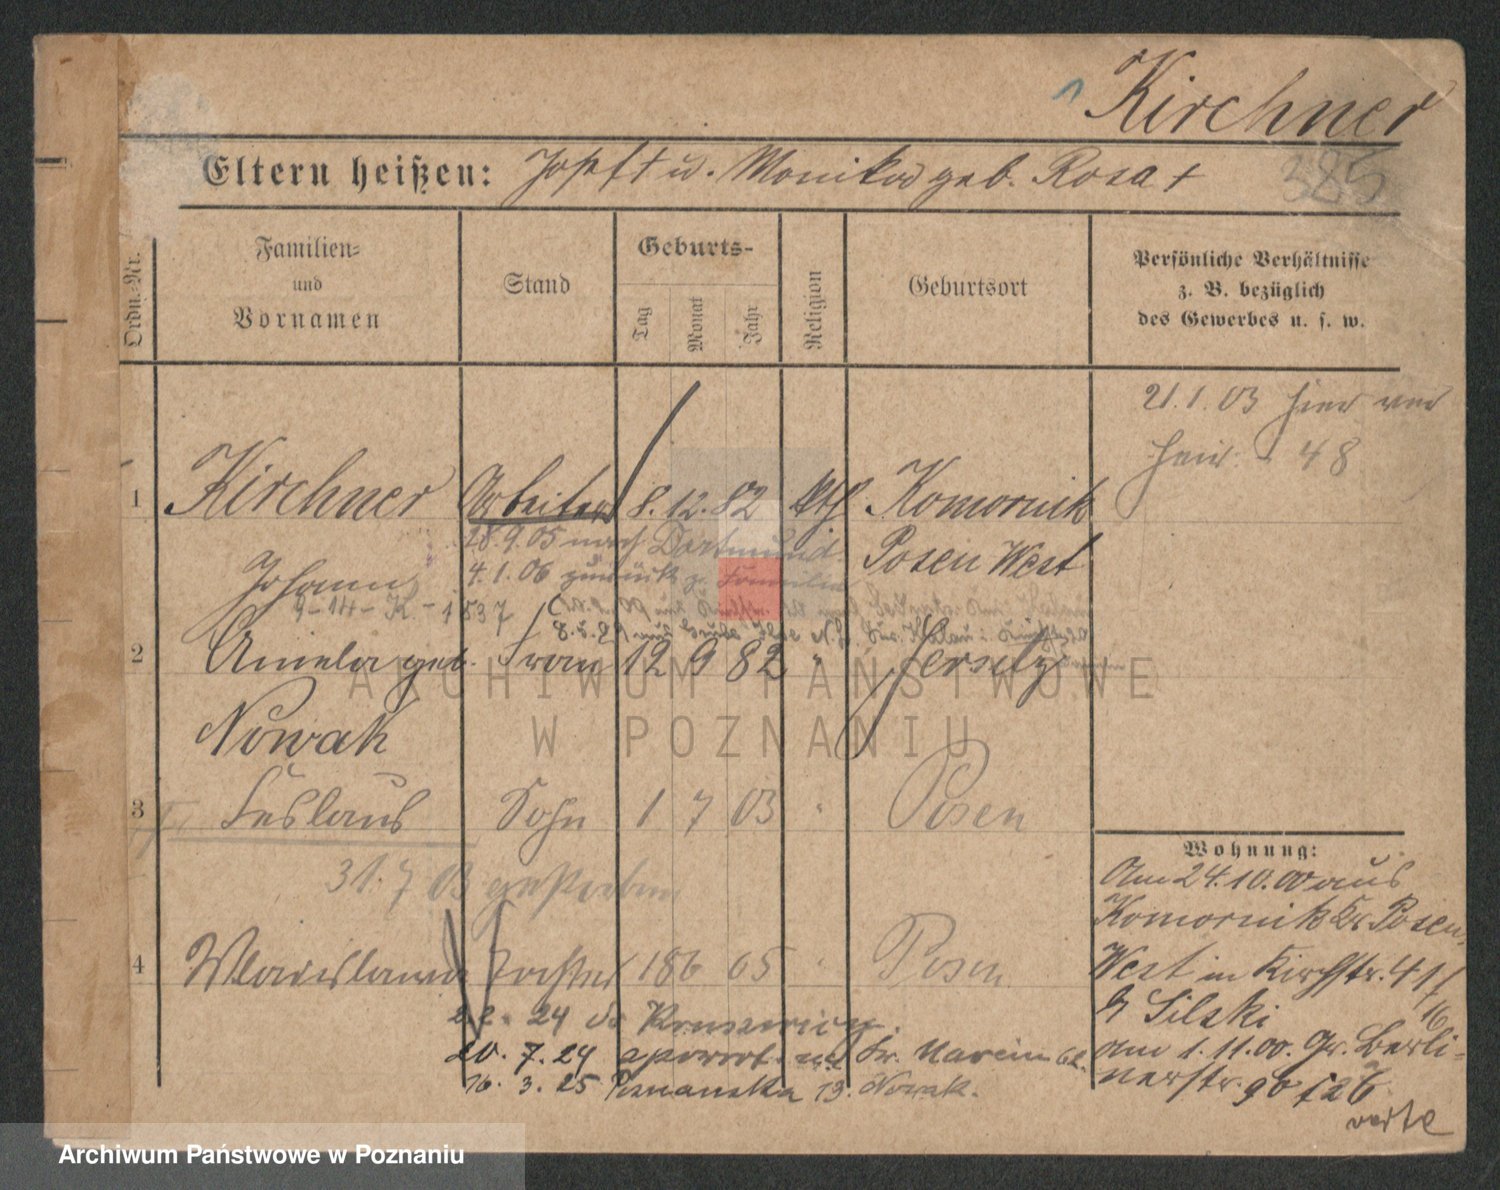 Kirchner
385
Eltern heißen: Joseft u. Monika geb. Rosa +
Ordn.-Nr.
Familien-
und
Vornamen
Stand
Geburts-
Tag
Monat
Jahr
Religion
Geburtsort
Persönliche Verhältnisse
z. B. bezüglich
des Gewerbes u. s. w.
21.1.03 hier ver
heir. 48
1 Kirchner Arbeiter 8. 12. 82 kth Komornik
Johann
Posen West
28.9.05 nach Dortmund
4.1.06 zurück z. Familie
9-14-K-1537
2 Aniela geb. Frau 12 9 82 " Jersitz
Nowak
3 Ceslaus Sohn 1 7 03 " Posen
31.7 03 gestorben
4 Wladislawa Tochter 18 6 05 " Posen
2.2. 24 do
20. 7. 24 spowrot Marcin 62.
16. 3. 25 Poznanska 13. Nowak.
Wohnung:
Am 24.10.00 aus
Komornik Kr. Posen
West in Kirchstr. 41
b Silski
am 1.11.00. Gr. Berli-
nerstr. 90
verte
ARCHIWUM PAŃSTWOWE
W POZNANIU
Archiwum Państwowe w Poznaniu